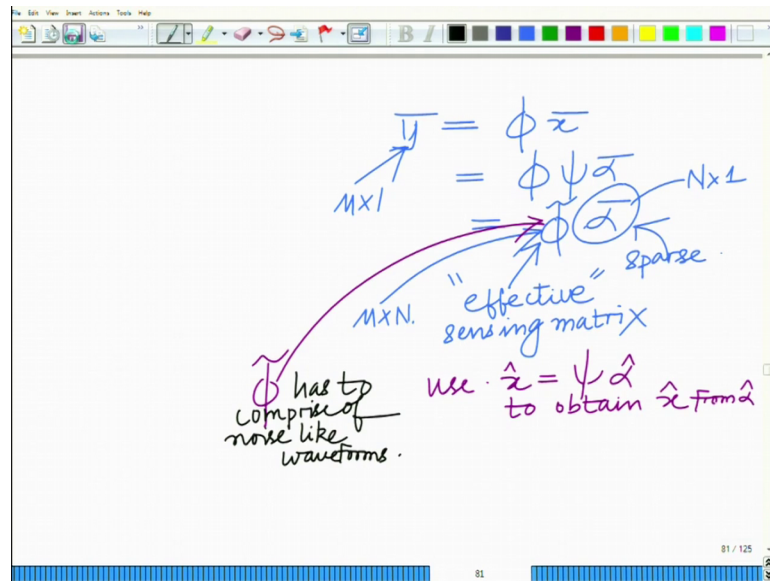 File Edit View Insert Actions Tools Help
B I
y̅ = ϕ x̅
= ϕ ψ α̅
= ϕ̃ α̅
M×1
N×1
sparse.
M×N.
"effective"
sensing matrix
ϕ̃ has to
comprise of
noise like
waveforms.
use. x̂ = ψ α̂
to obtain x̂ from α̂
81 / 125
81